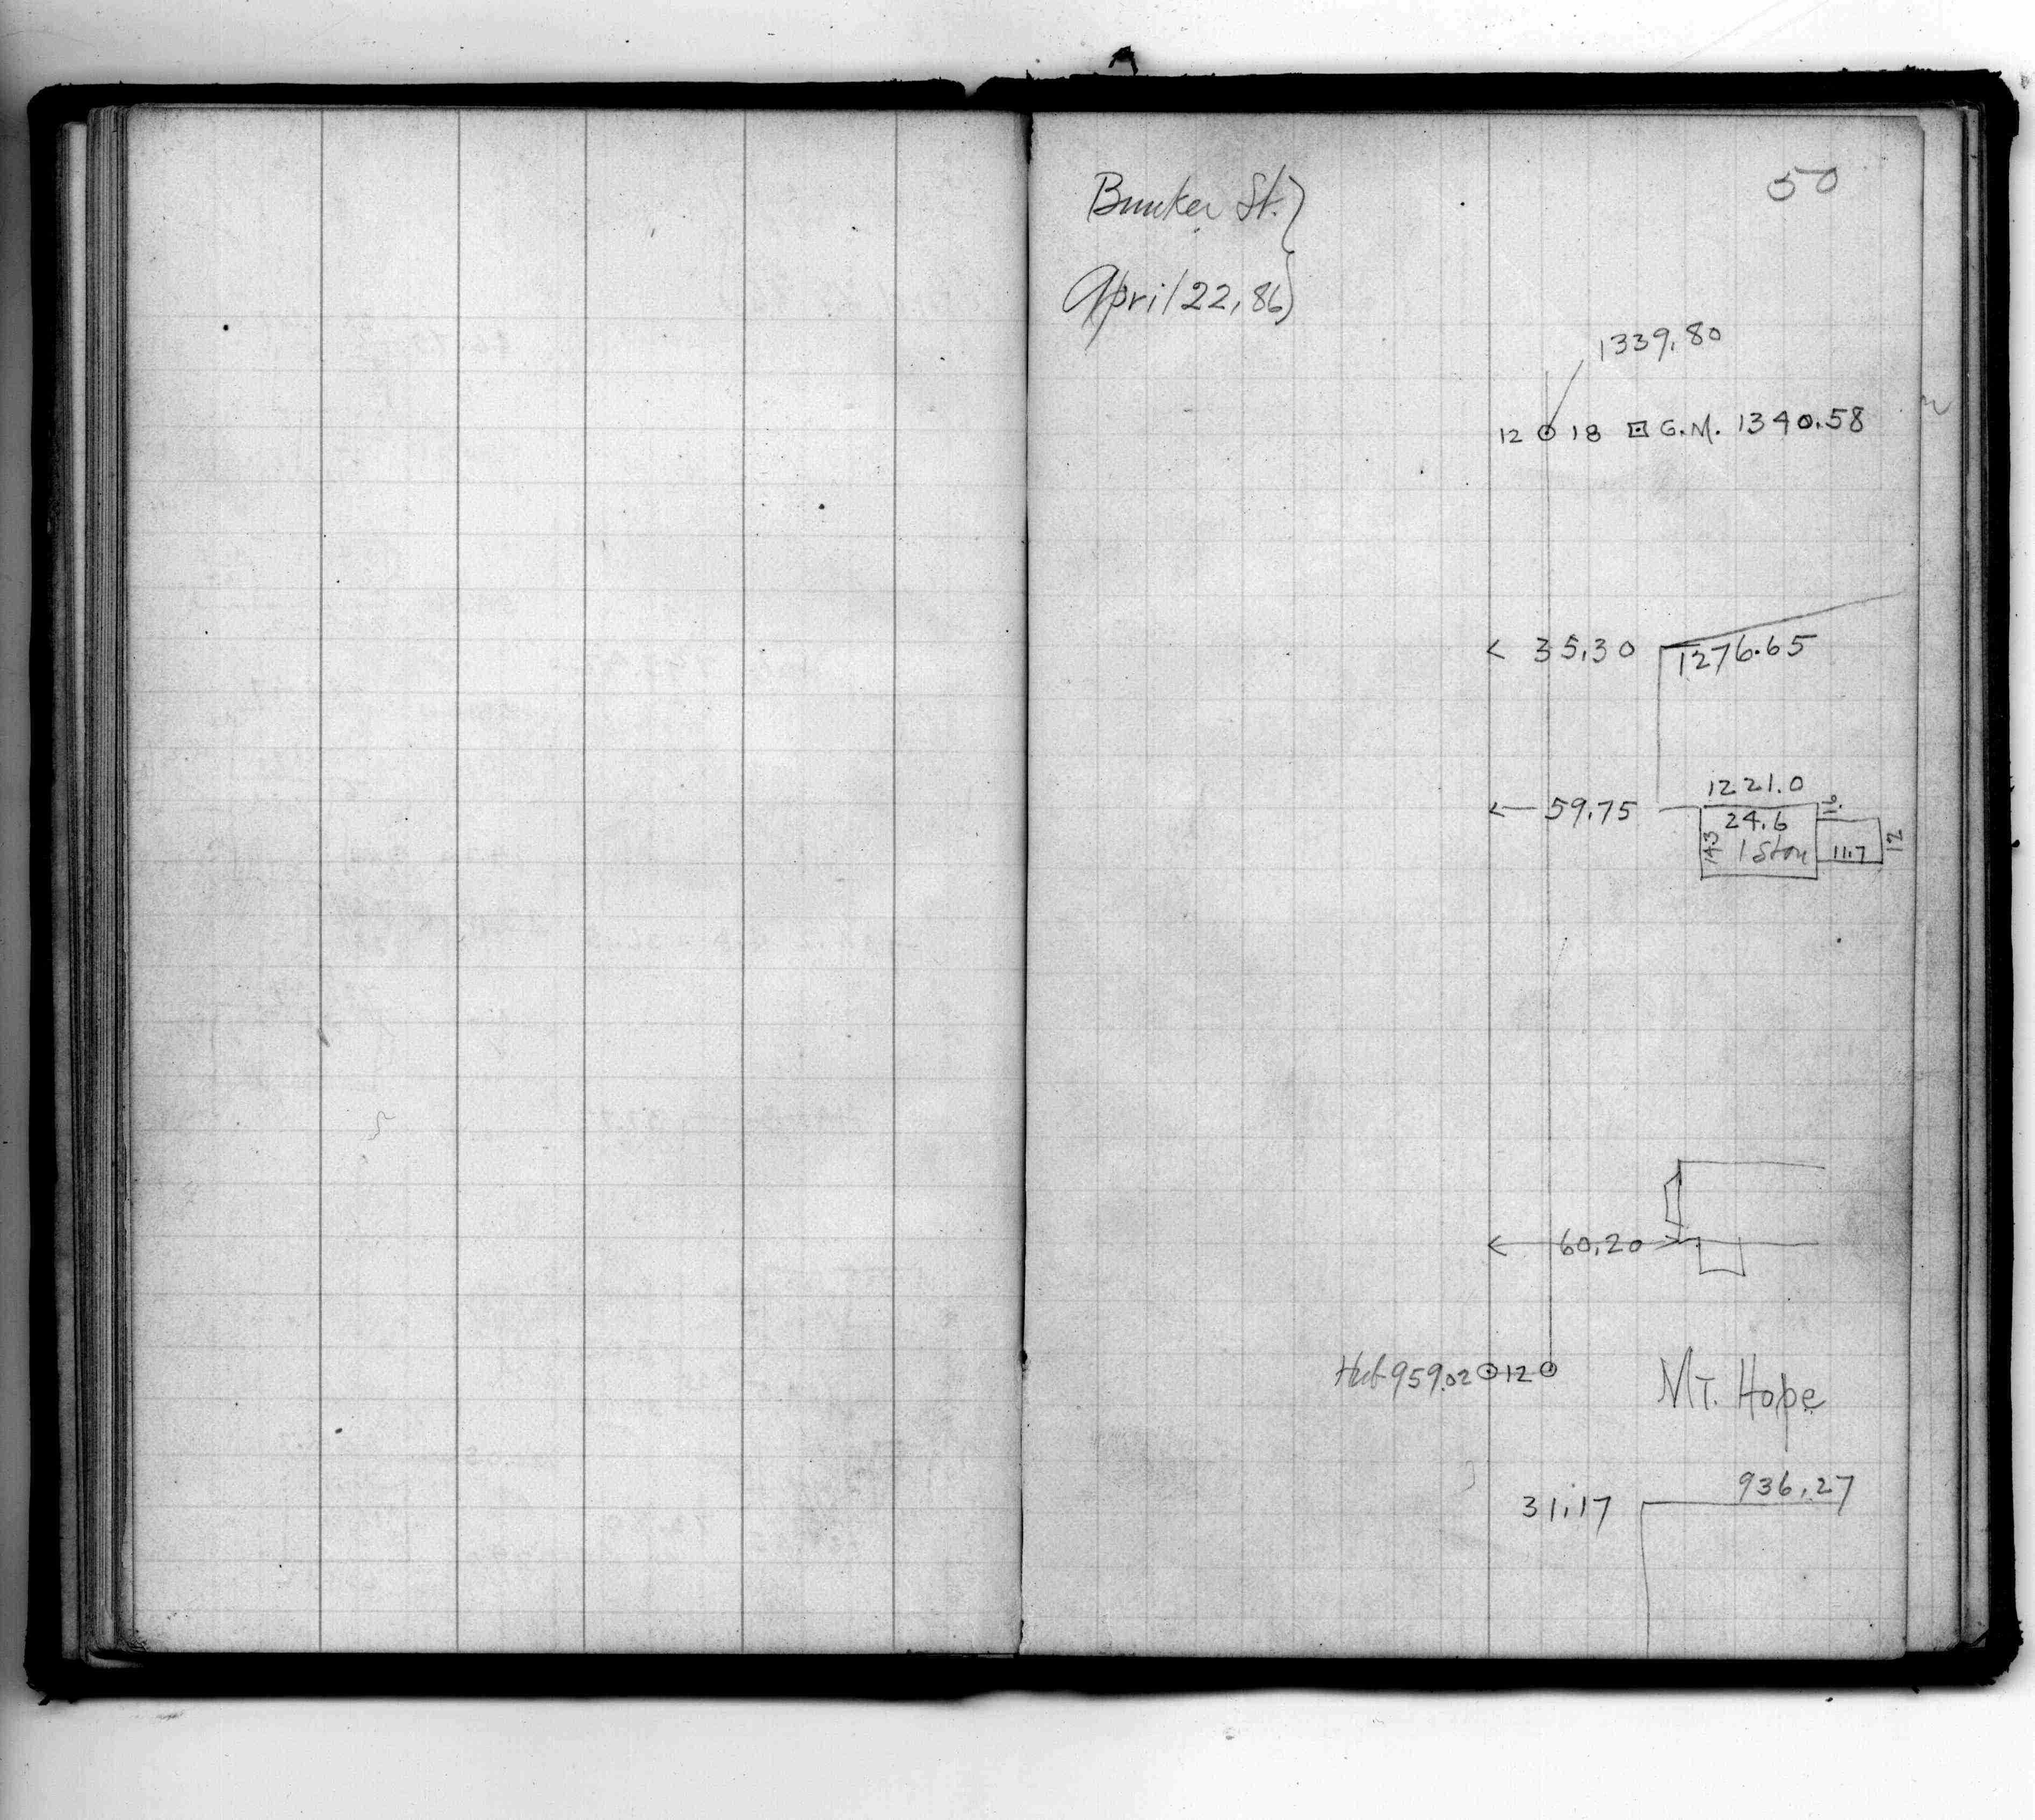 50
Bunker St.
April 22, 86
1339.80
12 18 G.M. 1340.58
35.30 1276.65
1221.0
59.75 24.6
14.3 1 Story 11.7 12
60.20
Hub 959.02 12
Mt. Hope
936.27
31.17